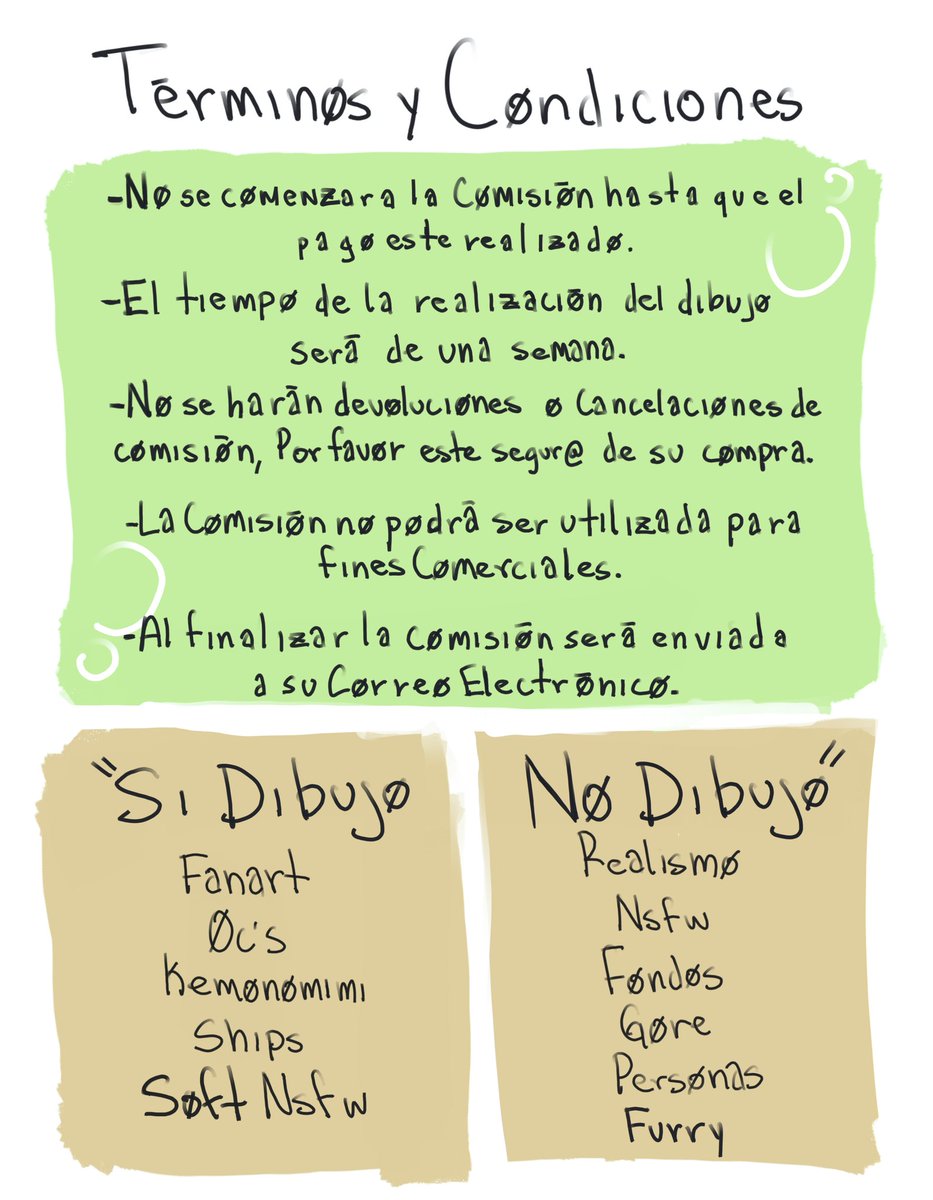 Términos y Condiciones
-No se comenzara la Comisión hasta que el
pago este realizado.
-El tiempo de la realización del dibujo
será de una semana.
-No se harán devoluciones o Cancelaciones de
comisión, Por favor este segur@ de su compra.
-La Comisión no podrá ser utilizada para
fines Comerciales.
-Al finalizar la comisión será enviada
a su Correo Electrónico.
"Si Dibujo
Fanart
Oc's
Kemonomimi
Ships
Soft Nsfw
No Dibujo"
Realismo
Nsfw
Fondos
Gore
Personas
Furry